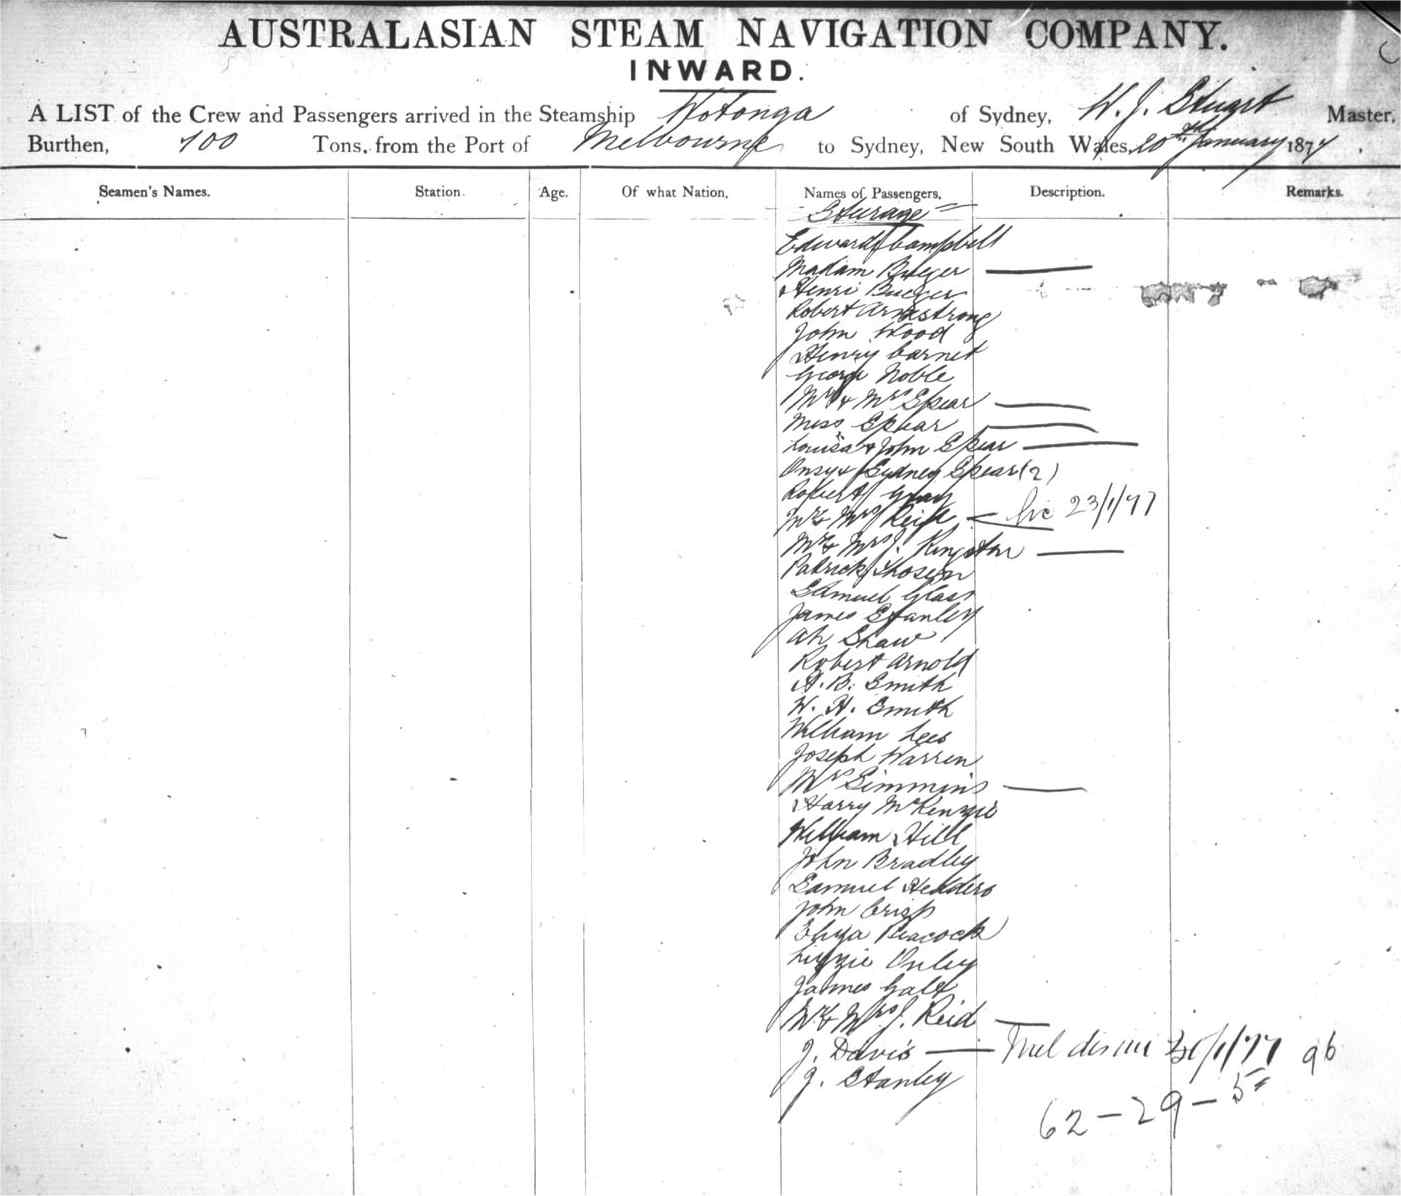 AUSTRALASIAN STEAM NAVIGATION COMPANY.
INWARD.
A LIST of the Crew and Passengers arrived in the Steamship Wotonga of Sydney, W. J. Stuart Master,
Burthen, 700 Tons, from the Port of Melbourne to Sydney, New South Wales, 20th January 1877.
Seamen's Names. Station. Age. Of what Nation, Names of Passengers, Description. Remarks.
Steerage
Edward Campbell
Madam
Henri
Robert Armstrong
John Wood
Henry Garnet
George Noble
Mr & Mrs Spear
Miss Spear
Louisa & John Spear
Sydney Spear (2)
Robert Gray
Mr & Mrs Reid 23/1/77
Mr & Mrs J. Kingston
Patrick
Samuel Glass
James Stanley
Ah Shaw
Robert Arnold
A. B. Smith
W. H. Smith
William Lees
Joseph Warren
Mrs Simmins
Harry McKenzie
William Hill
John Bradley
Samuel
John Crisp
Eliza Peacock
Lizzie Onley
James Galt
Mr & Mrs J. Reid
J. Davis 96
J. Stanley
62-29-5